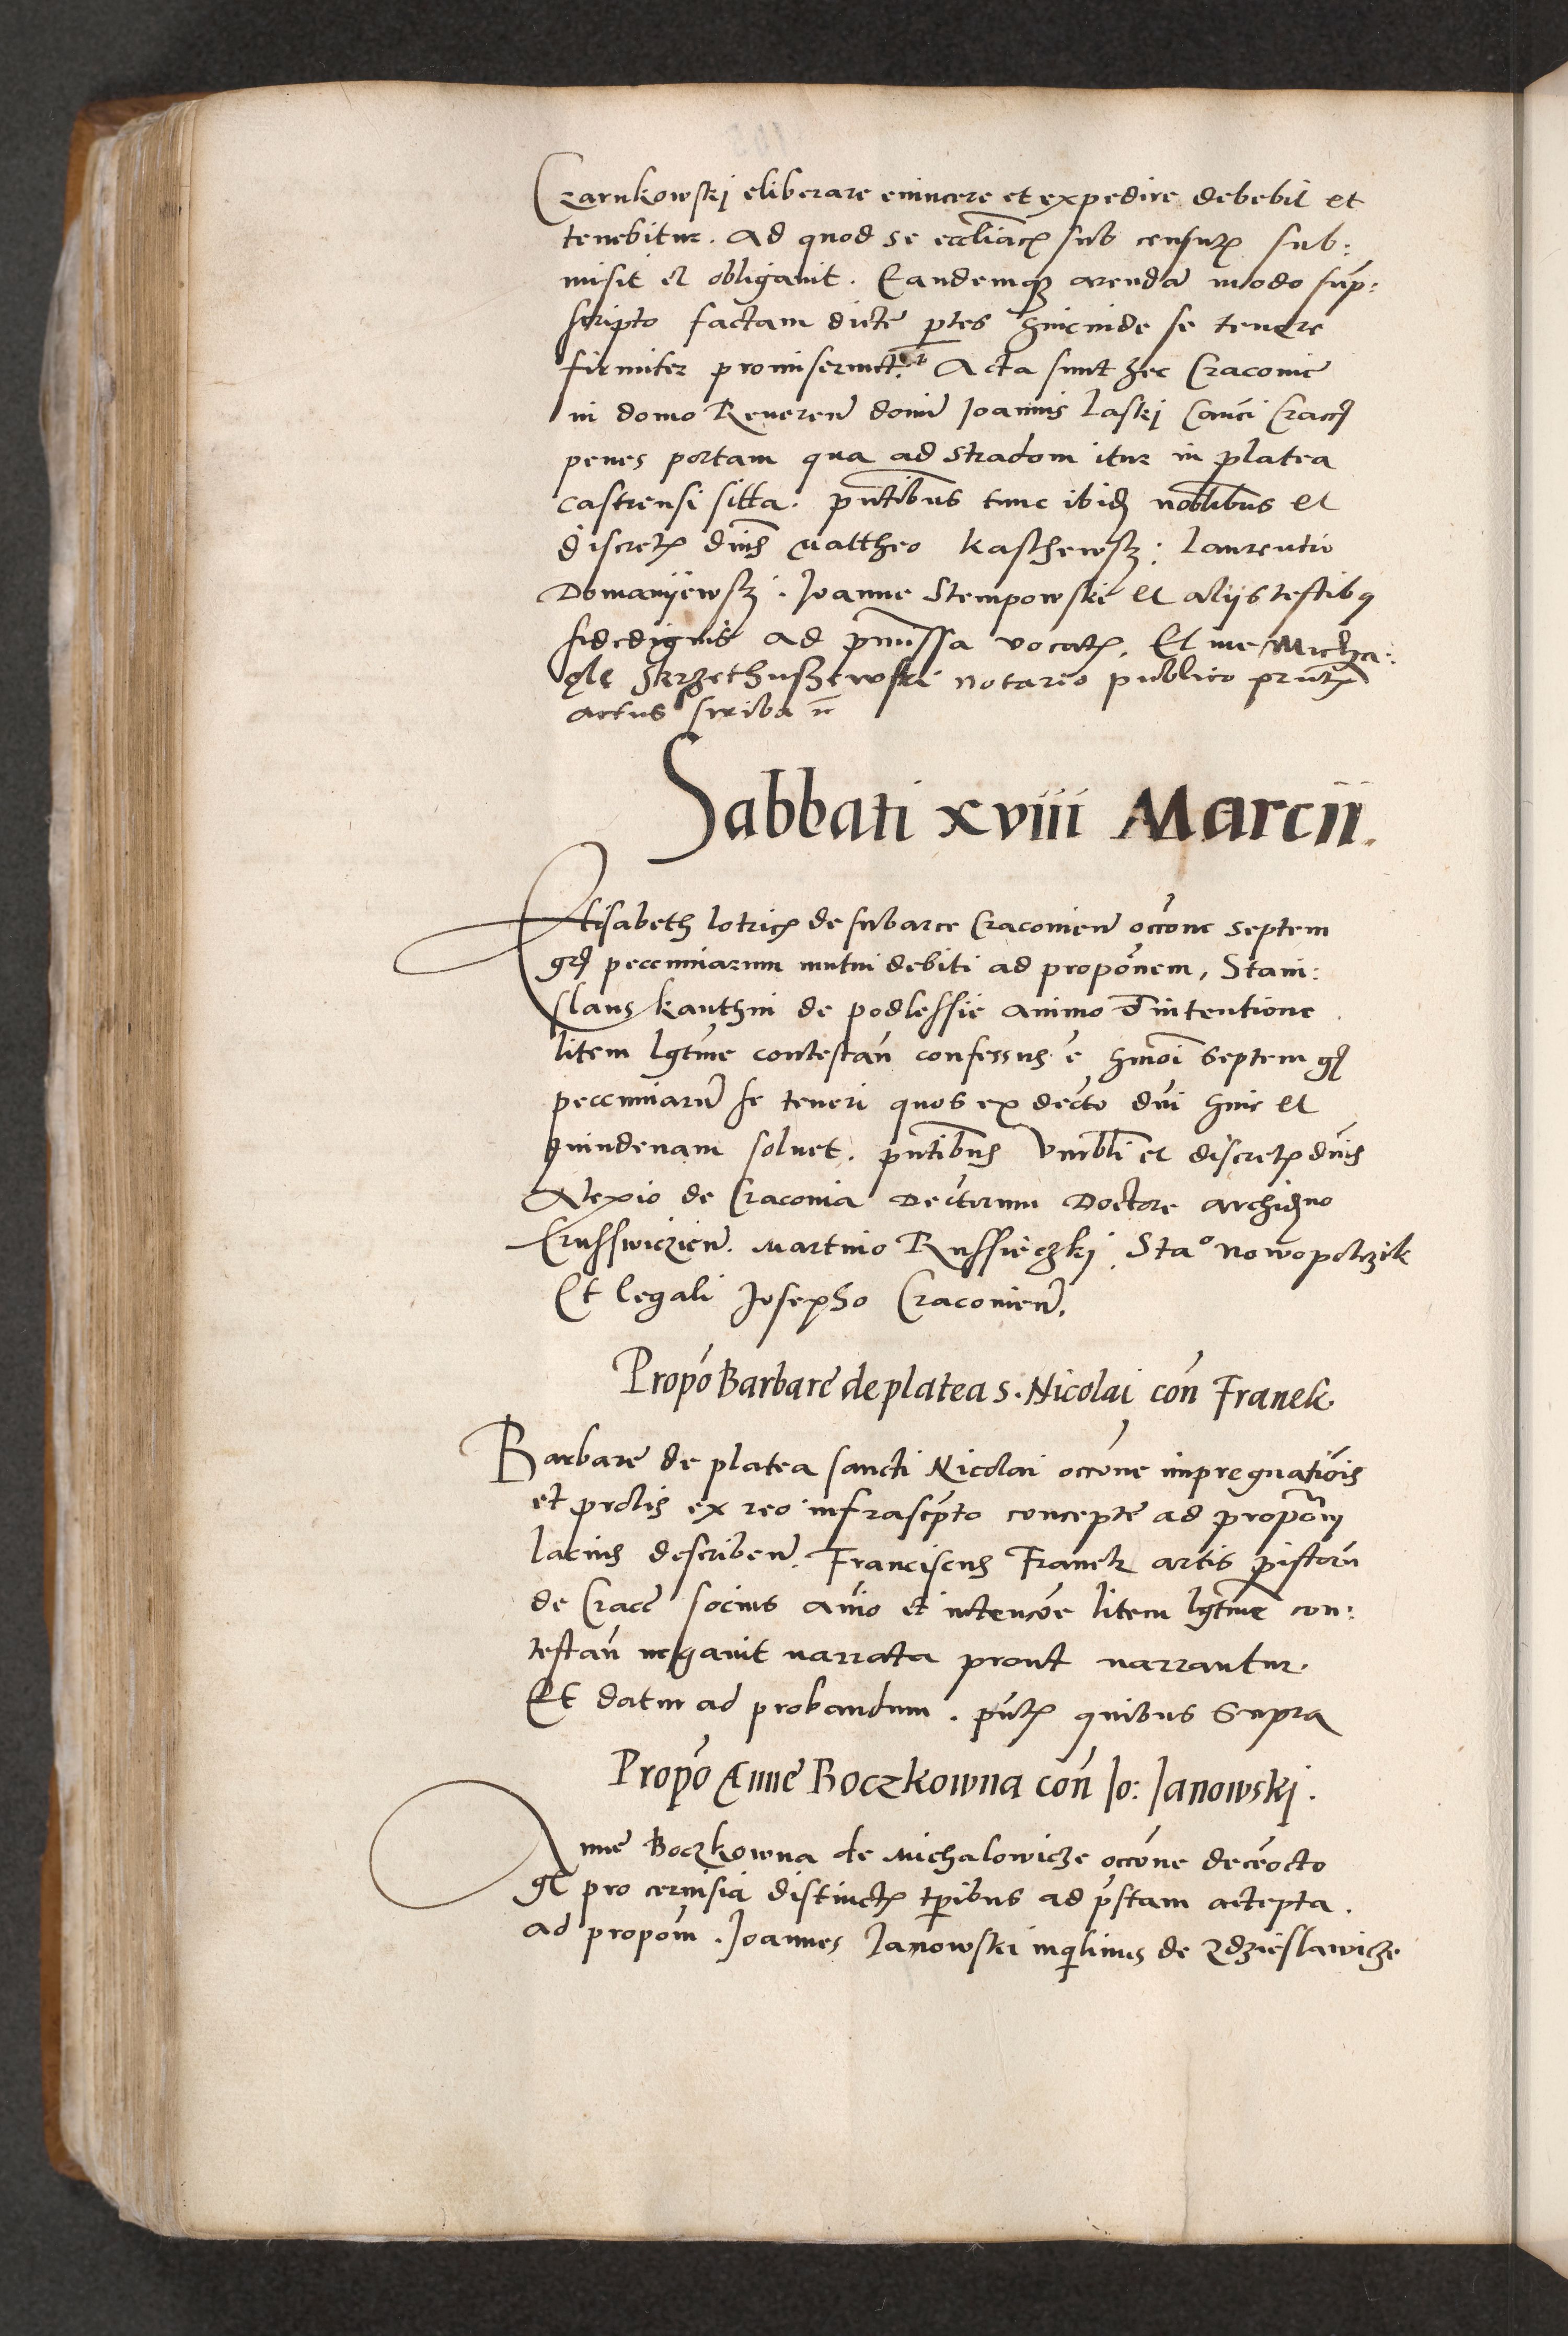 Czarnkowskj eliberare evincere et expedire debebit et
tenebitur. Ad quod se eccliacz sub censurz sub:
misit et obligavit. Eandemqz arenda modo sup:
scripto factam dicte ptes hincinde se tenere
firmiter promiserunt. Acta sunt hec Cracovie
in domo Reveren domi Joannis Laskj Canci Cracz
penes portam qua ad Stradom itur in platea
castrensi sitta. pntibus tunc ibid noblibus et
discretz dnis Mattheo Kaschewsz: Laurentio
Domanyewsz. Joanne Stempowski et alijs testibq
fidedignis ad pmissa vocatz. Et me Micha:
ele Skrzethuszewski notario publico prntz
actus scriba
Sabbati xviii Marcii.
Elisabeth lotricz de subarce Cracovien occone septem
grz peccuniarum mutui debiti ad proponem, Stani:
slaus Kauthni de podlessie animo et intentione
litem lgtme contestan confessus e hmoi septem gz
peccuniaru se teneri quos ex decto dni hinc et
quindenam solvet. pntibus Vnrbli et discretz dnis
Alexio de Cracovia Decretorum Doctore archidno
Crusswiczien. Martino Russieczkj Stao Nowopolczik
Et legali Josepho Cracovien.
Propo Barbare de platea s. Nicolai con Franek
Barbare de platea sancti Nicolai occone impregnationis
et prolis ex reo infrascpto concepte ad propom
lacius describen. Franciscus Franek artis pistoru
de Cracc socius aio et intencoe litem lgtme con:
testan negavit narrata prout narrantur.
Et datur ad probandum. pntz quibus Supra
Propo Anne Boczkowna con Jo: Janowskj.
Anne Boczkowna de Michalowicze occone deceocto
gr pro cervisia distinctz tpibus ad pstam accepta.
ad propom. Joannes Janowski inqlinus de Zdzieslawicze